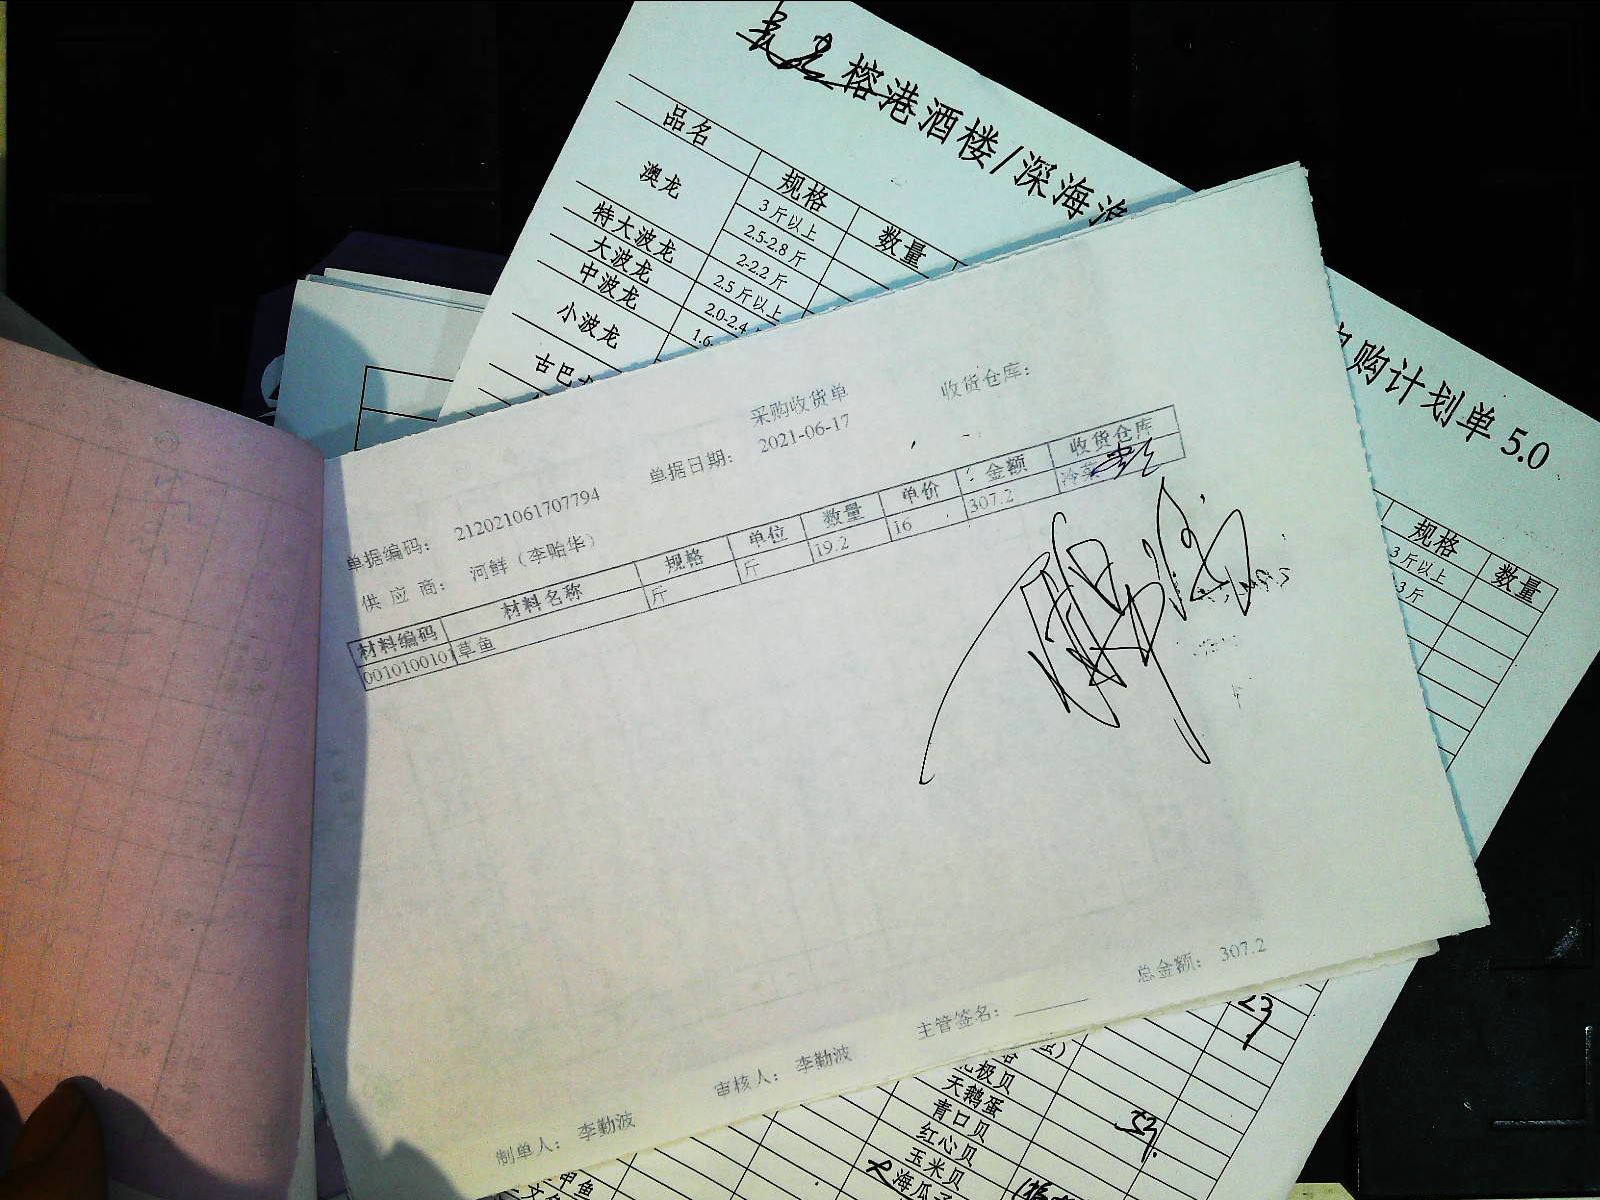 榕港酒楼/深海渔
购计划单 5.0
品名 规格 数量
澳龙 3斤以上
2.5-2.8斤
2-2.2斤
特大波龙 2.5斤以上
大波龙 2.0-2.4
中波龙 1.6
小波龙
古巴
规格 数量
3斤以上
3斤
采购收货单
单据编码： 212021061707794 单据日期： 2021-06-17 收货仓库：
供 应 商： 河鲜（李贻华）
材料编码 材料名称 规格 单位 数量 单价 金额 收货仓库
0010100101 草鱼 斤 斤 19.2 16 307.2 冷菜
总金额： 307.2
制单人： 李勤波 审核人： 李勤波 主管签名：
极贝
天鹅蛋
青口贝
红心贝
玉米贝
海瓜子
甲鱼